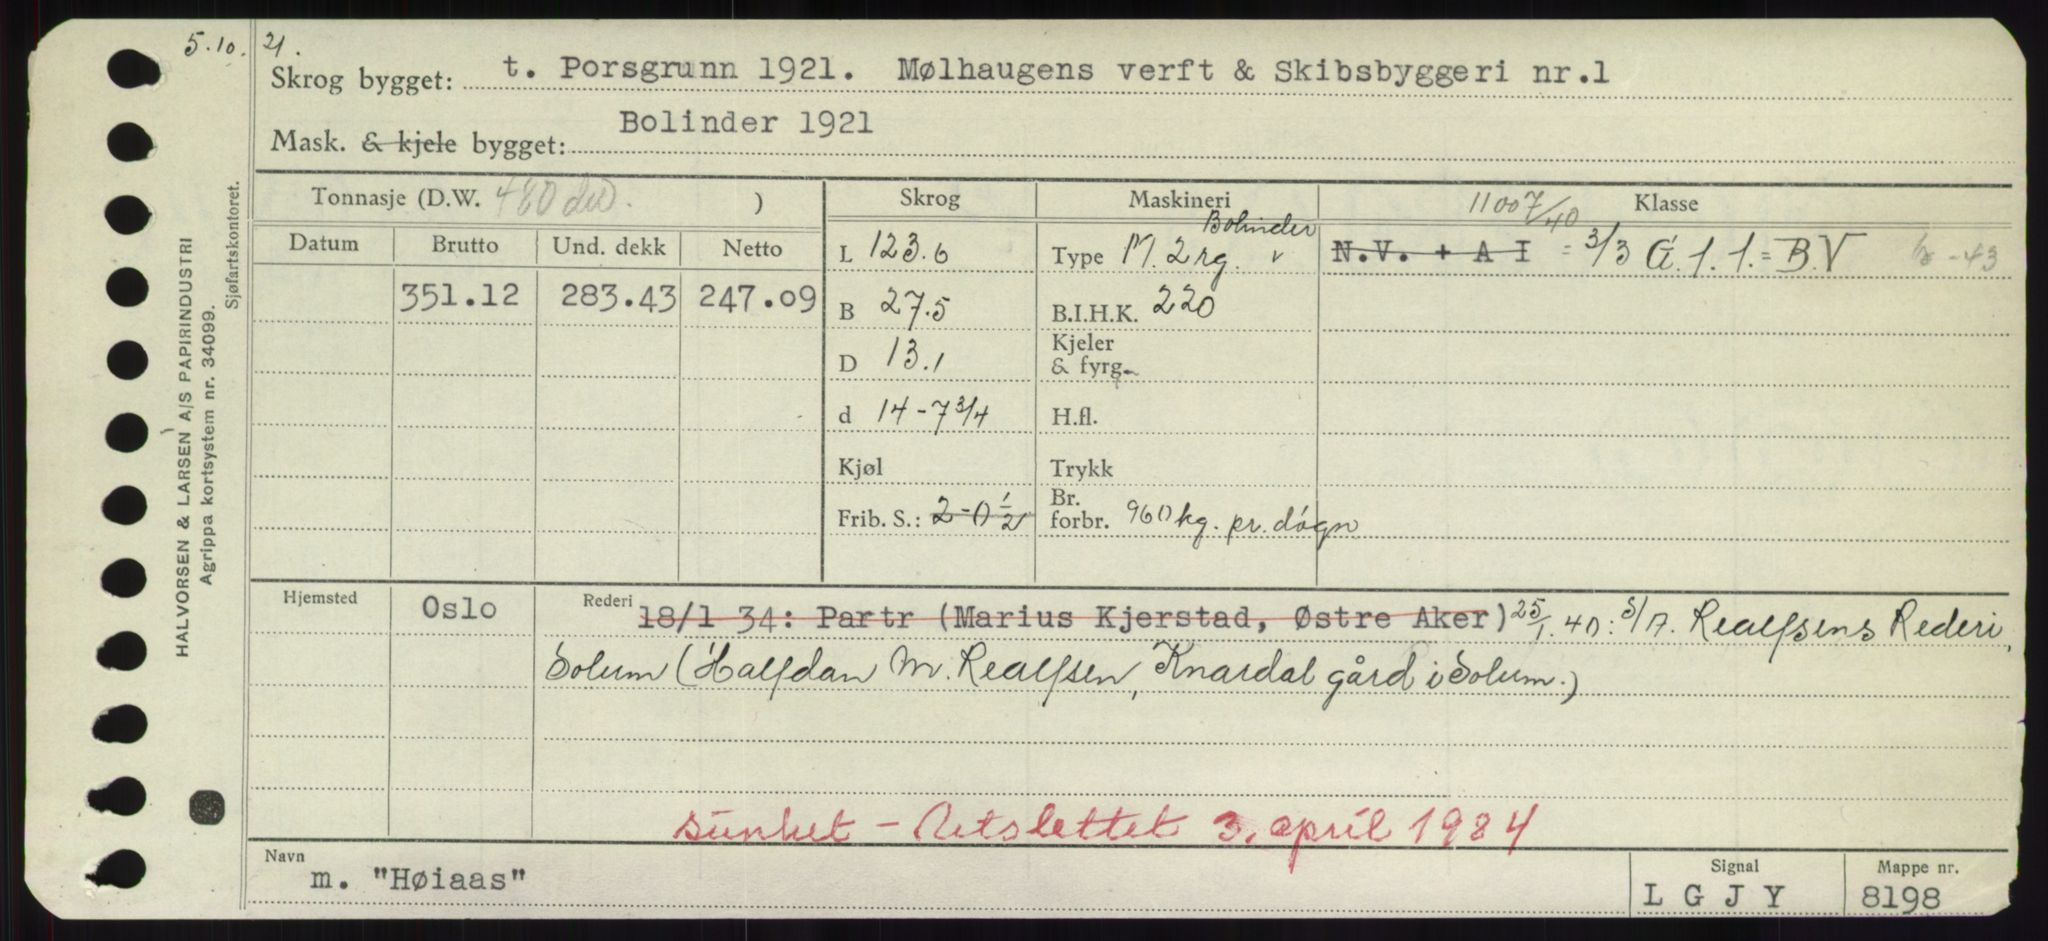 5.10. 21.
Skrog bygget: t. Porsgrunn 1921. Mølhaugens verft & Skibsbyggeri nr.1
Mask. & kjele bygget: Bolinder 1921
HALVORSEN & LARSEN A/S PAPIRINDUSTRI
Agrippa kortsystem nr. 34099.
Sjøfartskontoret.
Tonnasje (D.W. 480 dw. )
Datum Brutto Und. dekk Netto
351.12 283.43 247.09
Skrog
L 123.6
B 27.5
D 13.1
d 14-7 3/4
Kjøl
Frib. S.: 2-0 1/2
Maskineri
Bolinder
Type M. 2 rg. v
B.I.H.K. 220
Kjeler
& fyrg.
H.fl.
Trykk
Br.
forbr. 960 kg. pr. døgn
11007/40 Klasse
N.V. + A I = 3/3 Á. 1. 1. = B.V -43
Hjemsted Oslo
Rederi 18/1 34: Partr (Marius Kjerstad, Østre Aker) 25/1. 40: S/A. Realfsens Rederi,
Solum (Halfdan M. Realfsen, Knardal gård i Solum.)
sunket - Retslettet 3. april 1984
Navn
m. "Høiaas"
Signal
L G J Y
Mappe nr.
8198